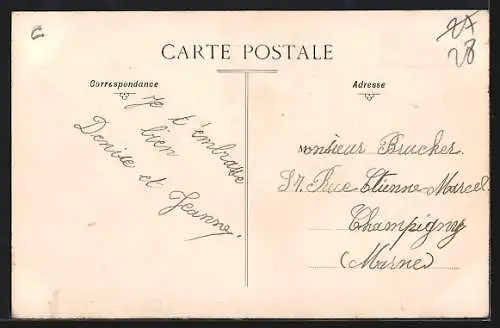 CARTE POSTALE
Correspondance
Adresse
Je t'embrasse
bien
Denise et Jeanne.
Monsieur Brucker.
37. Rue Etienne Marcel.
Champigny
(Marne)
28